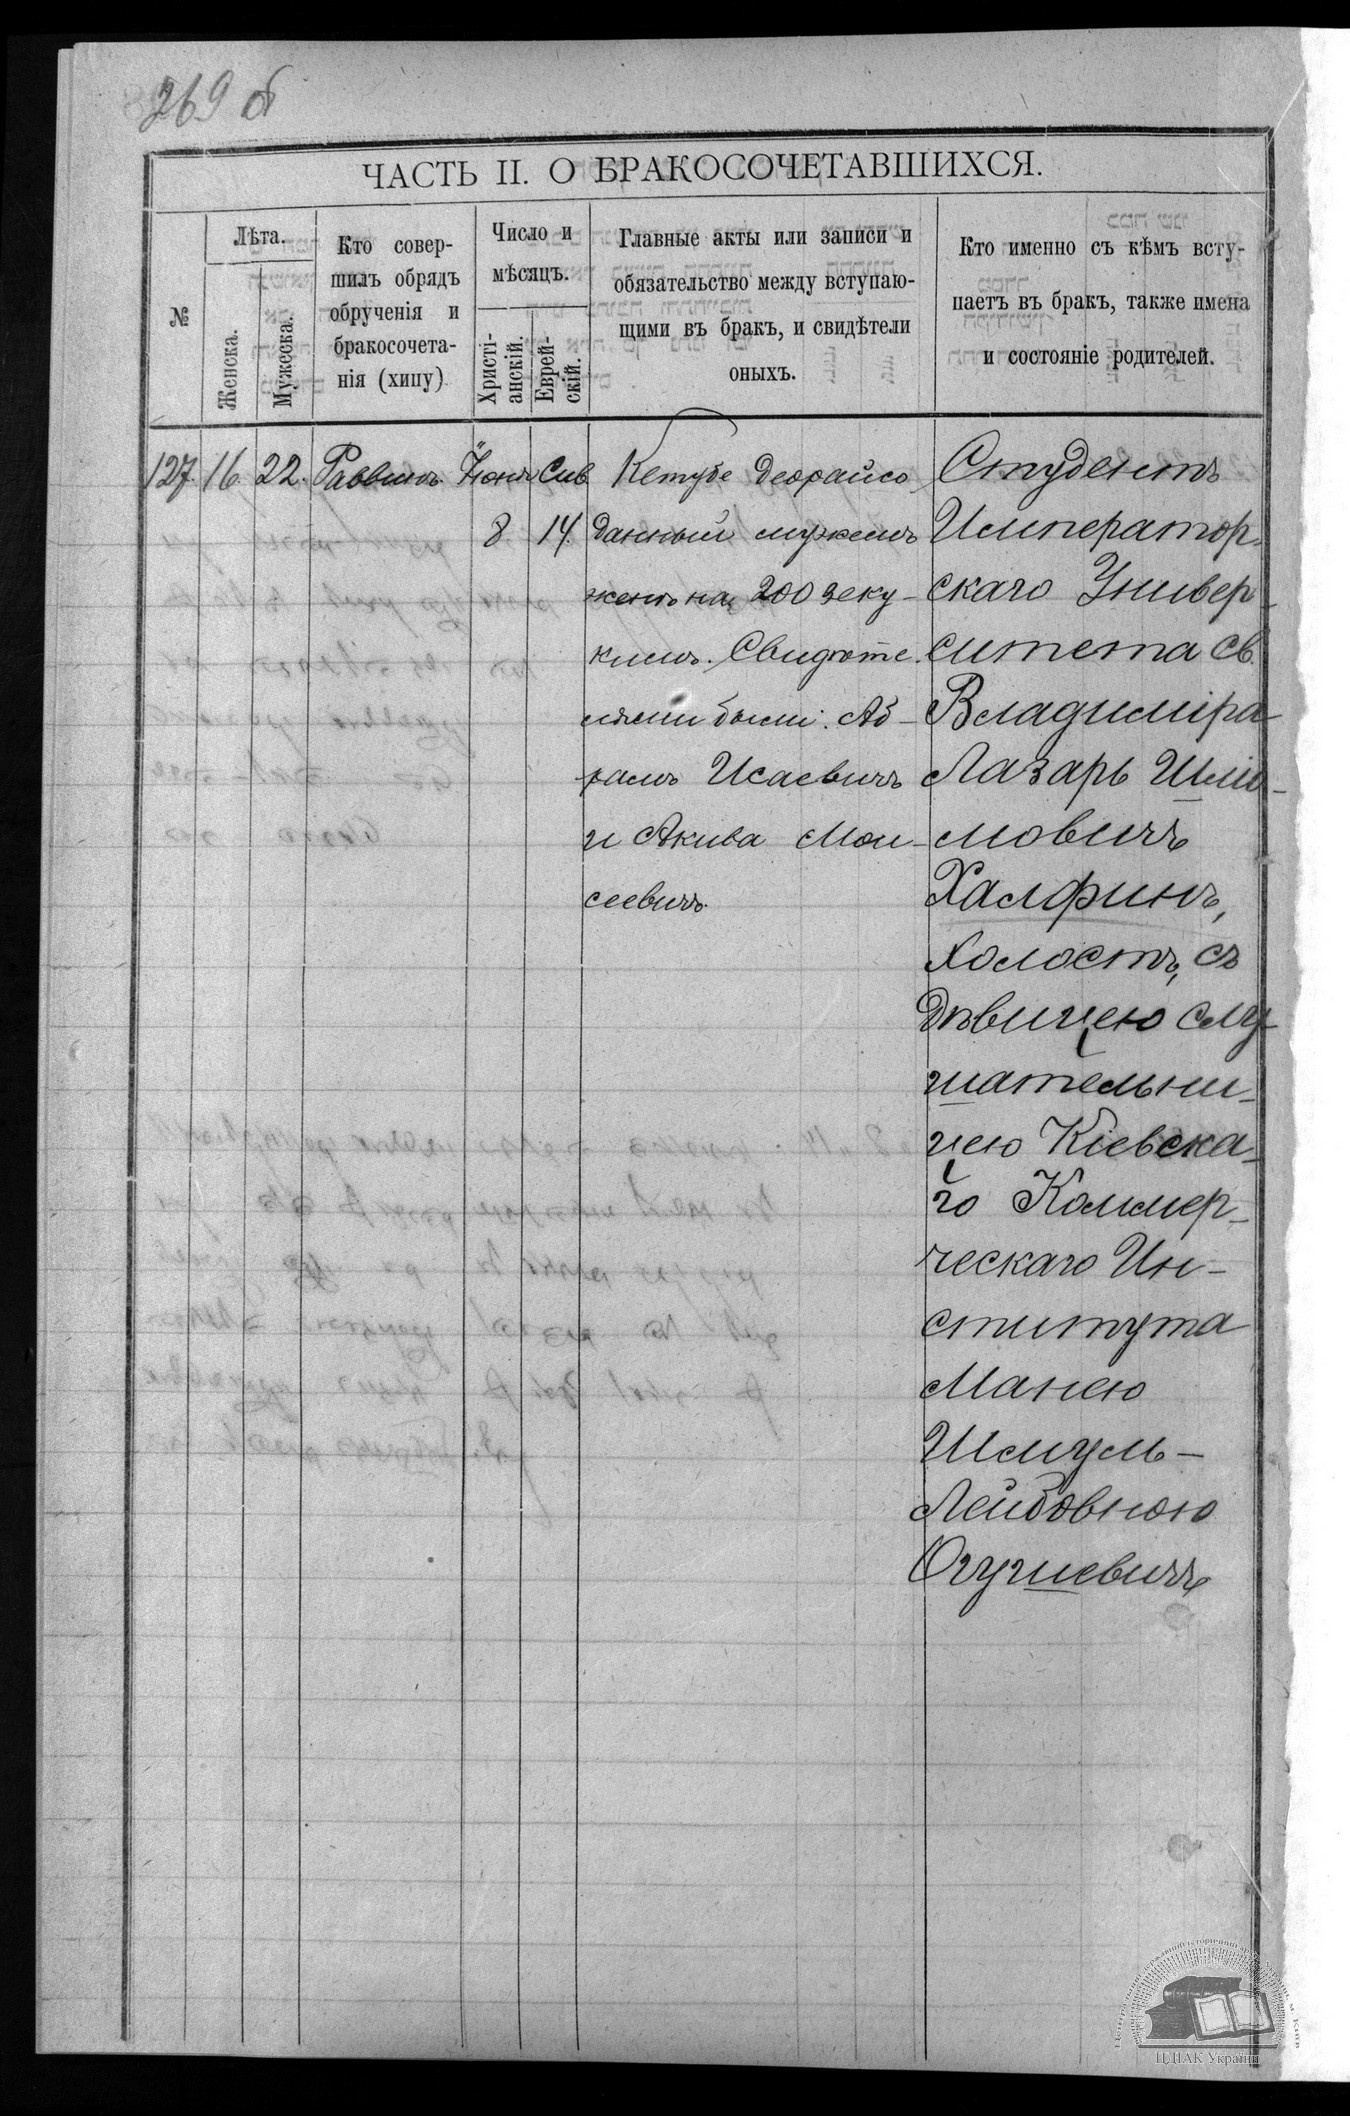 269 б
ЧАСТЬ II. О БРАКОСОЧЕТАВШИХСЯ.
№
Лѣта.
Женска.
Мужеска.
Кто совер-
шилъ обрядъ
обрученія и
бракосочета-
нія (хипу)
Число и
мѣсяцъ.
Христі-
анскій.
Еврей-
скій.
Главные акты или записи и
обязательство между вступаю-
щими въ бракъ, и свидѣтели
оныхъ.
Кто именно съ кѣмъ всту-
паетъ въ бракъ, также имена
и состояніе родителей.
127. 16. 22. Раввинъ. Іюнь 8 Сив 14.
Кетубе деорайсо
данный мужемъ
женѣ на 200 зеку-
кимъ. Свидѣте-
лями были: Аб-
рамъ Исаевичъ
и Акива Мои-
сеевичъ.
Студентъ
Император-
скаго Универ-
ситета св.
Владиміра
Лазарь Шліо-
мовичъ
Халфинъ,
холостъ, съ
дѣвицею слу-
шательни-
цею Кіевска-
го Коммер-
ческаго Ин-
ститута
Манею
Шмуль-
Лейбовною
Огушевичъ
ЦДІАК України